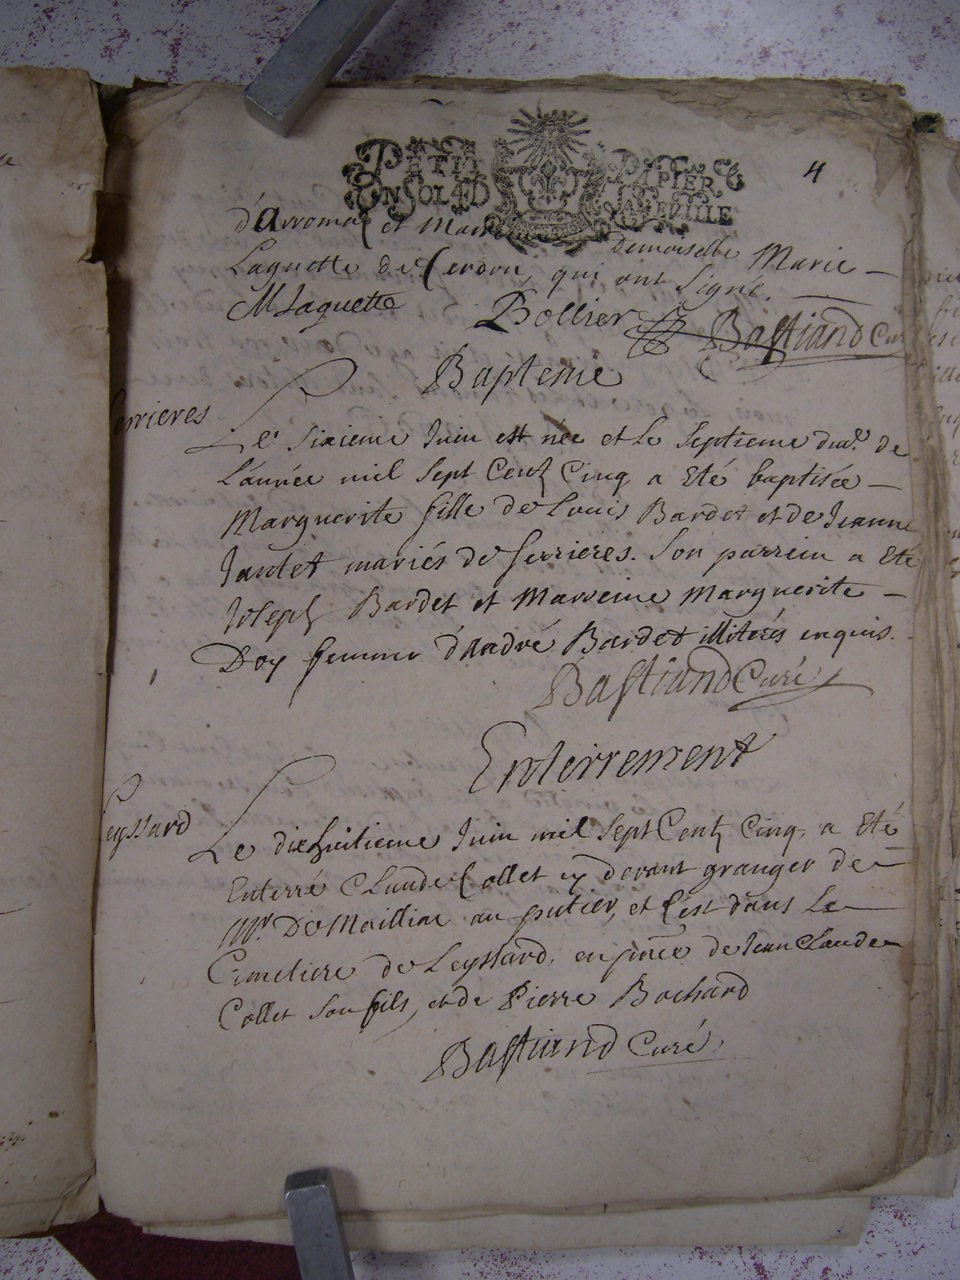 4
PETIT PAPIER
UN SOL LED LA FEUILLE
d'arroma et Marreine demoiselle Marie
Laguette de Cerdon, qui ont signé.
M Laguette Bollier Bastiand Curé
Bapteme
Serrieres
Le sixieme Juin est née et le septieme dud. de
L'année mil sept Cent Cinq a eté baptisée
Marguerite fille de Louis Bardet et de Jeanne
Jantet mariés de serrieres. Son parrein a eté
Joseph Bardet et Marreine Marguerite
Doy femme d'andré Bardet illiterés enquis.
Bastiand Curé
Enterrement
Leyssard
Le dixhuitieme Juin mil sept Cent Cinq, a eté
Enterré Claude Collet cy devant granger de
Mr. De Mailliac au putier, et c'est dans Le
Cimetiere de Leyssard, en pnce de Jean Claude
Collet son fils, et de Pierre Bochard
Bastiand Curé